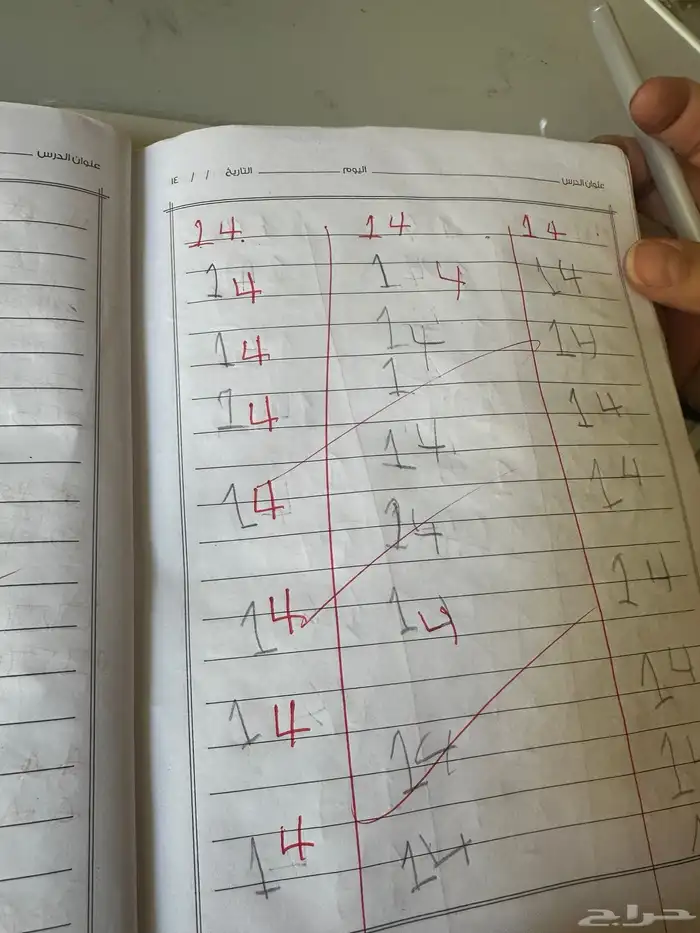 عنوان الدرس
عنوان الدرس اليوم التاريخ / / ١٤
14 14 14
14 1 4 14
14 14 14
1
14 14
14 14 14
14 14
14 14 14
14 14
14
14 14
حراج